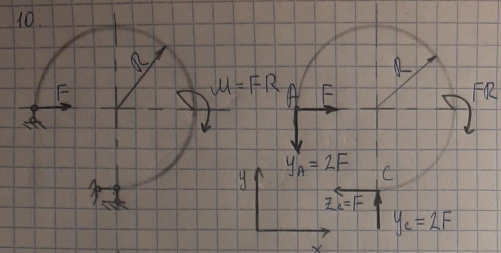 10.
R
F
M=FR
A
F
R
FR
y_A=2F
y
x
C
z_C=F
y_C=2F